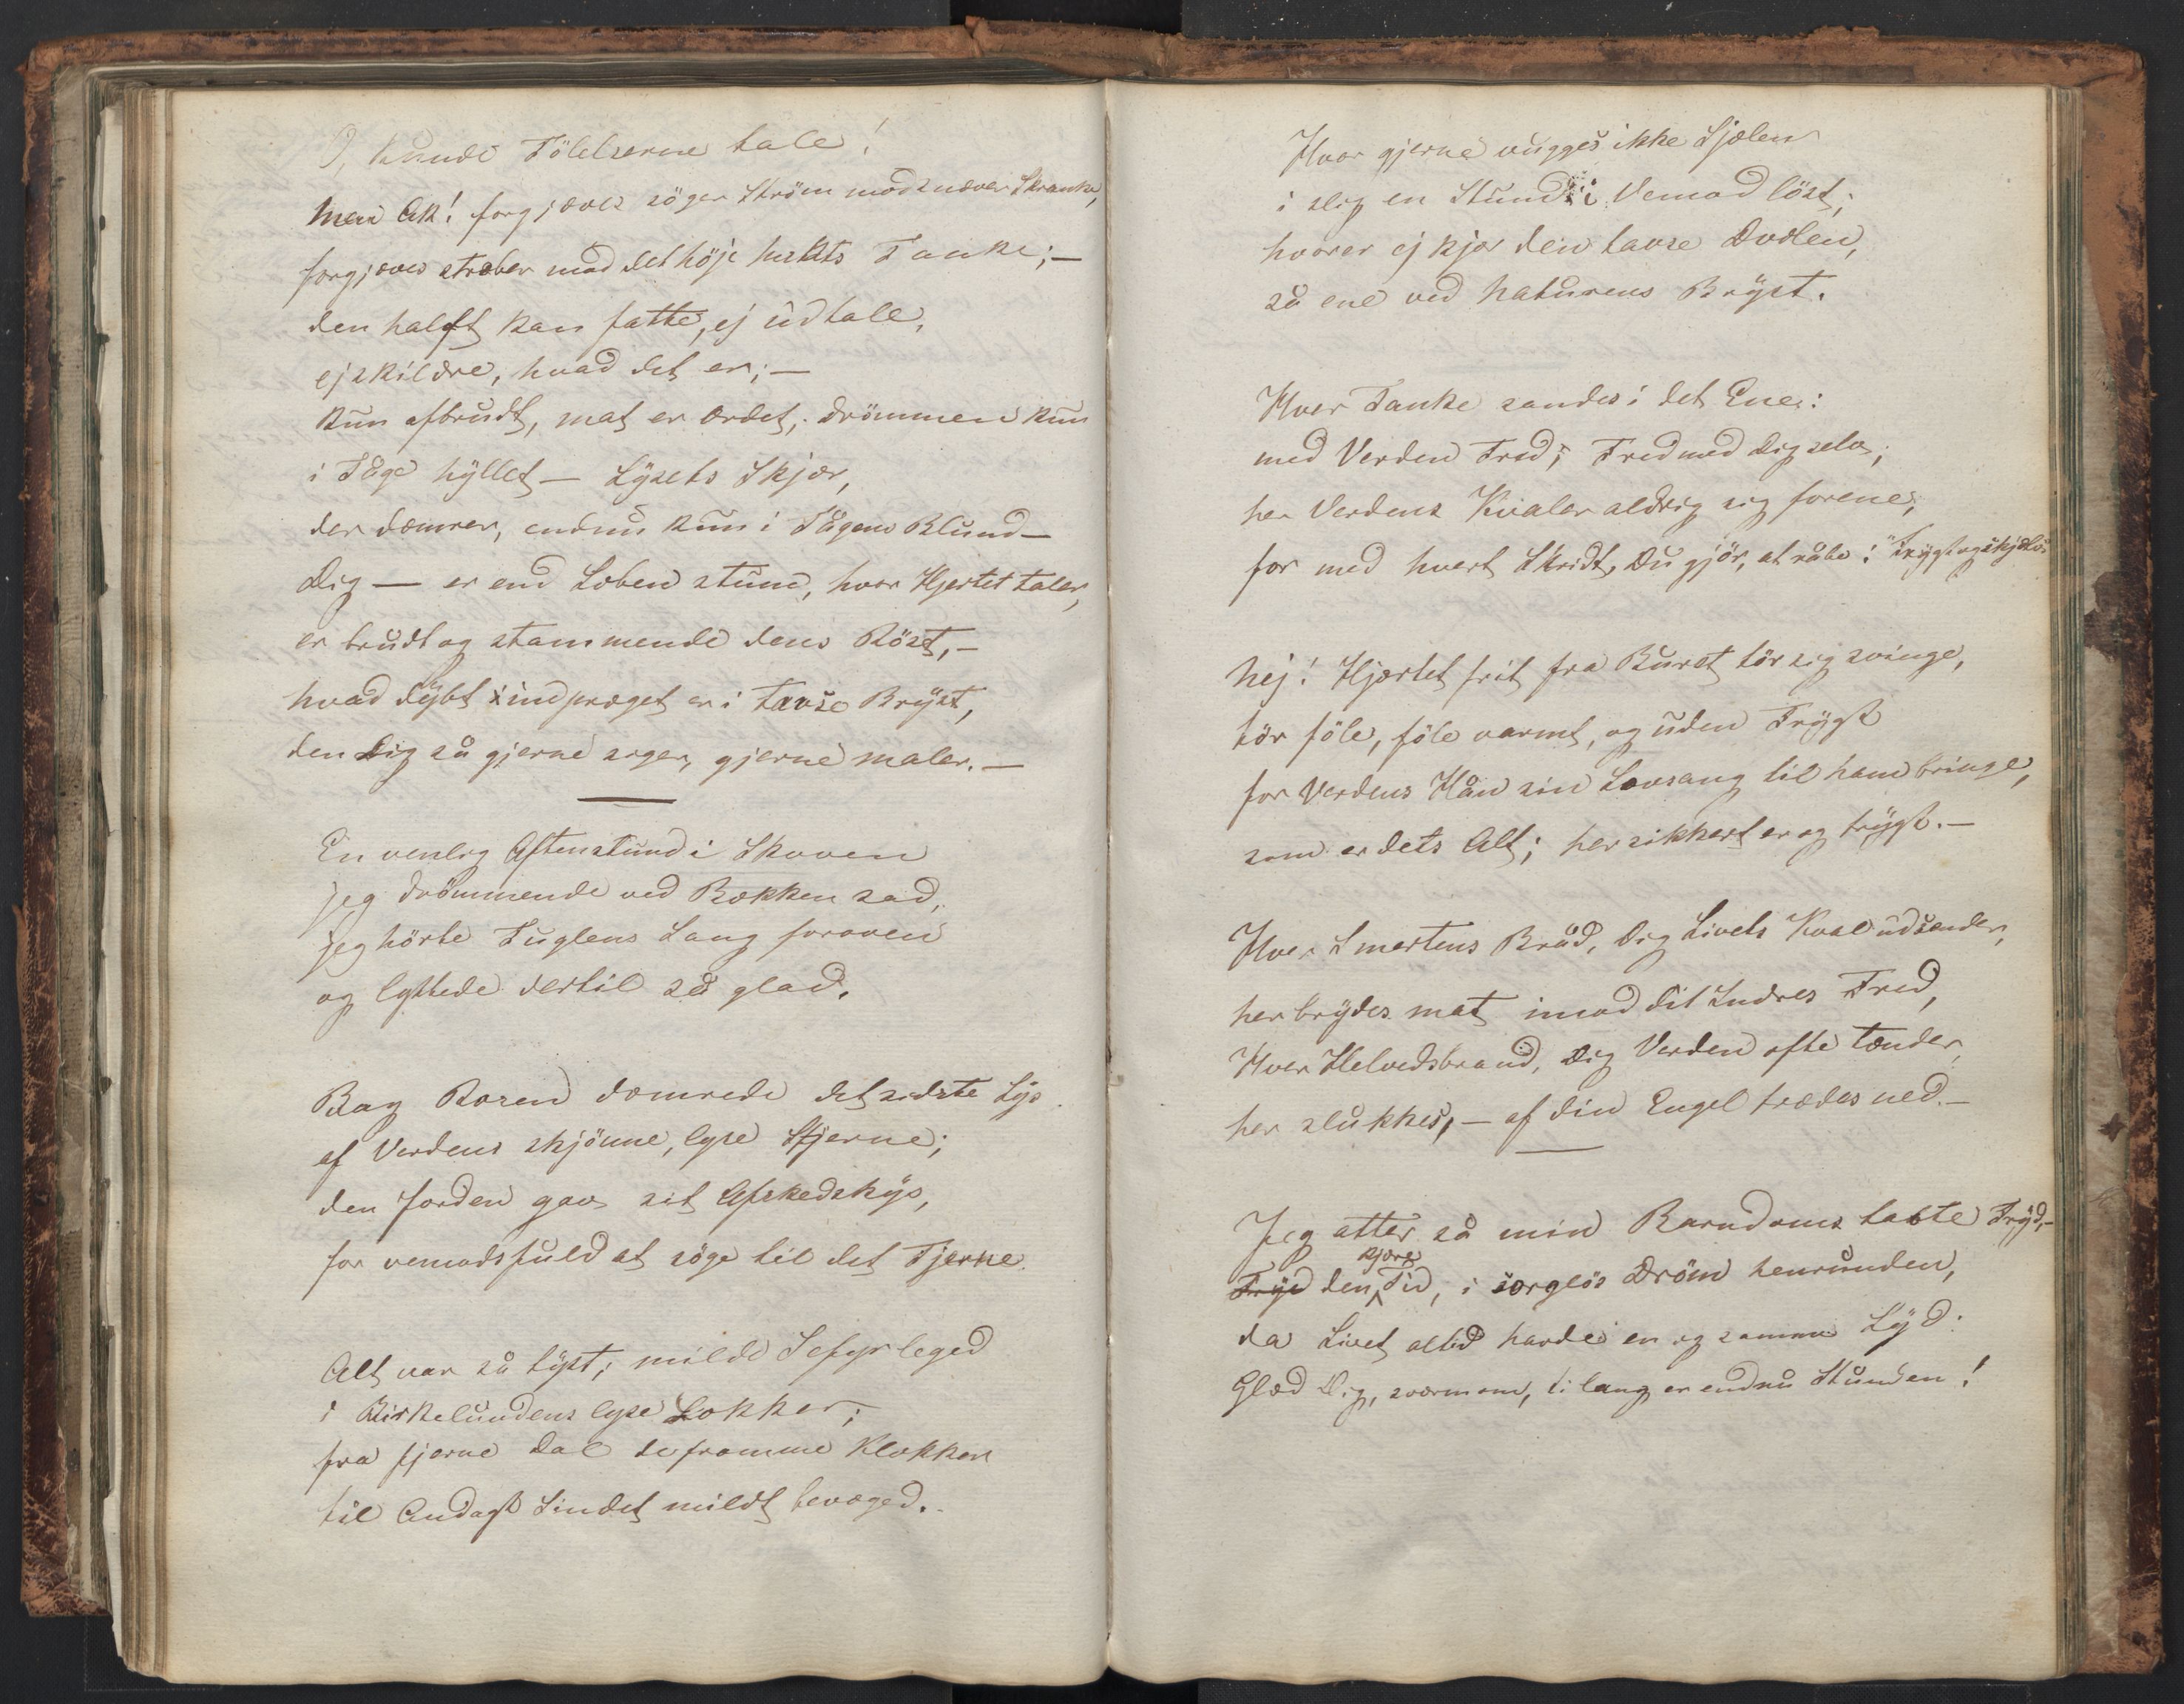 O, kunde Fölelserne tale!
men Ak! forgjæves söger Ström mod snæver Skranke,
forgjæves stræber mod det höje hvælts Tanke; —
den halft kan fatte, ej udtale,
ej skildre, hvad det er; —
kun afbrudt, mat er Ordet, Drömmen kun
i Tåge hyllet — Lysets Skjær,
der dæmrer, endnu kun i Tågens Blund —
Dig — er end Læben stum, hvor Hjertet taler,
er brudt og stammende dens Röst, —
hvad dybt indpræget er i tause Bryst,
den Dig så gjerne siger, gjerne maler. —
En venlig Aftenstund i Skoven
jeg drömmende ved Bækken sad,
jeg hörte Fuglens Sang foroven
og lyttede dertil så glad.
Bag Roser dæmrede det sidste Lys
af Verdens skjönne, lyse Stjerne;
den Jorden gav sit Afskedskys,
for vemodsfuld at söge til det Fjerne.
Alt var så tyst; milde Sefyr leged
i Birkelundens lyse Lokker;
fra fjerne Dal de fromme Klokker
til Andagt Sindet mildt bevæged.
Hvor gjerne vugges ikke Sjælen
i slig en Stund i Vemod löst;
hvorer ej kjær den tause Dvælen,
så ene ved Naturens Bryst.
Hver Tanke sandes i det Ene:
med Verden Fred; Fred med dig selv;
her Verdens Kvaler aldrig sig forene,
for med hvert Skridt, Du gjör, at råbe:
Nej! Hjærtet frit fra Buret tör sig svinge,
tör föle, föle varmt, og uden Frygt
for Verdens Hån sin Lovsang til ham bringe,
som er dets Alt; her sikkert er og trygt. —
Hver Smertens Bråd, Dig Livets Kval udsender,
her brydes mat imod dit Indres Fred,
Hver Helvedsbrand, Dig Verden ofte tænder,
her slukkes, — af din Engel trædes ned. —
Jeg atter så min Barndoms tabte Fryd, —
Fryd den kjære Tid, i sorglös Dröm henrunden,
da Livet altid havde en og samme Lyd:
Glæd Dig, sværm om, ti lang er endnu Stunden!